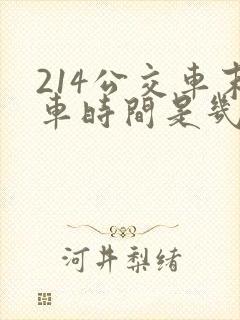 214公交車末
車時間是幾
河井梨緒